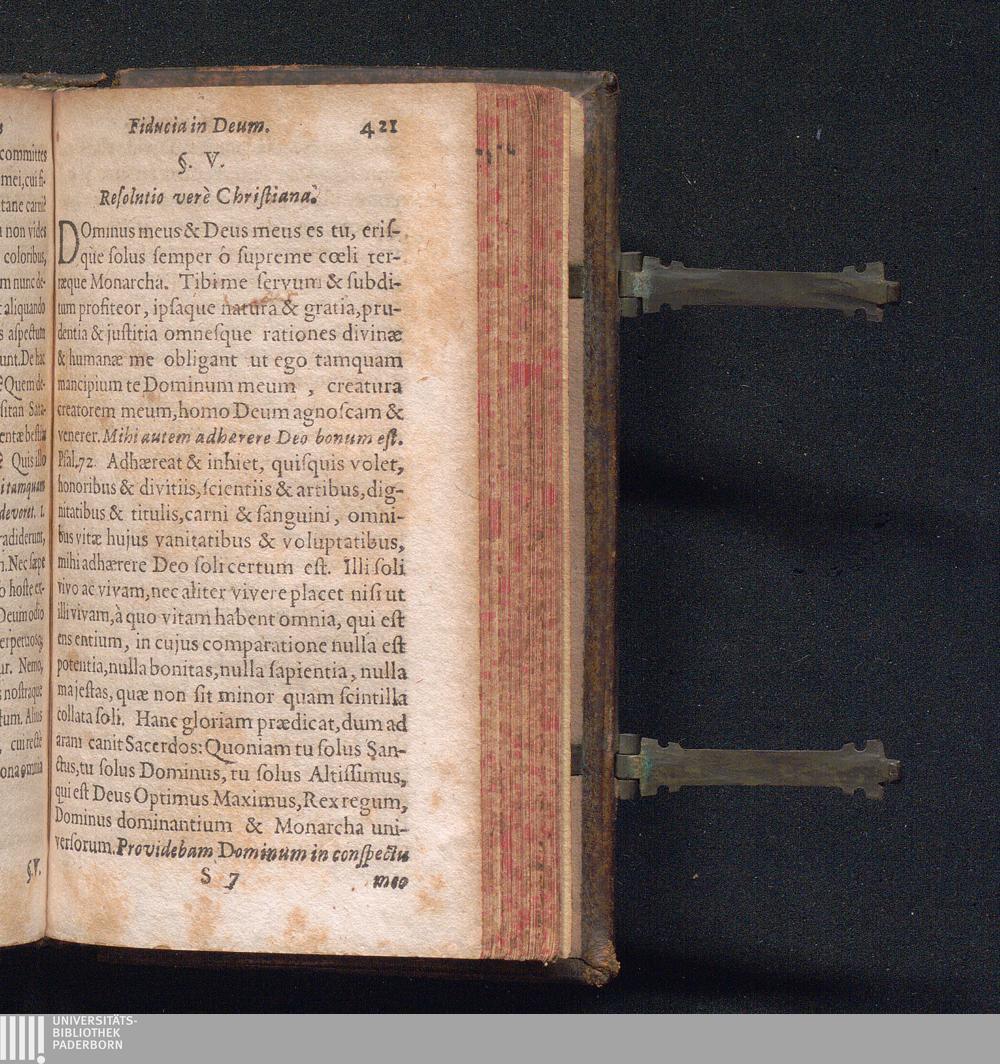 committes
mei, cui fi-
tane carnē
non vides
coloribus,
m nunc de-
aliquando
s aſpectum
unt. De hac
Quem de-
ſitan Sata-
entæ beſtiæ
Quis illo
tamquam
devoret. 1.
radiderunt,
Nec ſæpe
o hoſte ex-
Deum odio
erpetuosq;
ur. Nemo,
s noſtraque
tum. Alius
cui rectè
ona omnia
§. V.
Fiducia in Deum. 421
§. V.
Reſolutio verè Chriſtiana.
DOminus meus & Deus meus es tu, eriſ-
que ſolus ſemper ô ſupreme cœli ter-
ræque Monarcha. Tibi me ſervum & ſubdi-
tum profiteor, ipſaque natura & gratia, pru-
dentia & juſtitia omneſque rationes divinæ
& humanæ me obligant ut ego tamquam
mancipium te Dominum meum , creatura
creatorem meum, homo Deum agnoſcam &
venerer. Mihi autem adhærere Deo bonum eſt.
Pſal. 72. Adhæreat & inhiet, quiſquis volet,
honoribus & divitiis, ſcientiis & artibus, dig-
nitatibus & titulis, carni & ſanguini, omni-
bus vitæ hujus vanitatibus & voluptatibus,
mihi adhærere Deo ſoli certum eſt. Illi ſoli
vivo ac vivam, nec aliter vivere placet niſi ut
illi vivam, à quo vitam habent omnia, qui eſt
ens entium, in cujus comparatione nulla eſt
potentia, nulla bonitas, nulla ſapientia, nulla
majeſtas, quæ non ſit minor quam ſcintilla
collata ſoli. Hanc gloriam prædicat, dum ad
aram canit Sacerdos: Quoniam tu ſolus San-
ctus, tu ſolus Dominus, tu ſolus Altiſſimus,
qui eſt Deus Optimus Maximus, Rex regum,
Dominus dominantium & Monarcha uni-
verſorum. Providebam Dominum in conſpectu
S 7 meo
UNIVERSITÄTS-
BIBLIOTHEK
PADERBORN